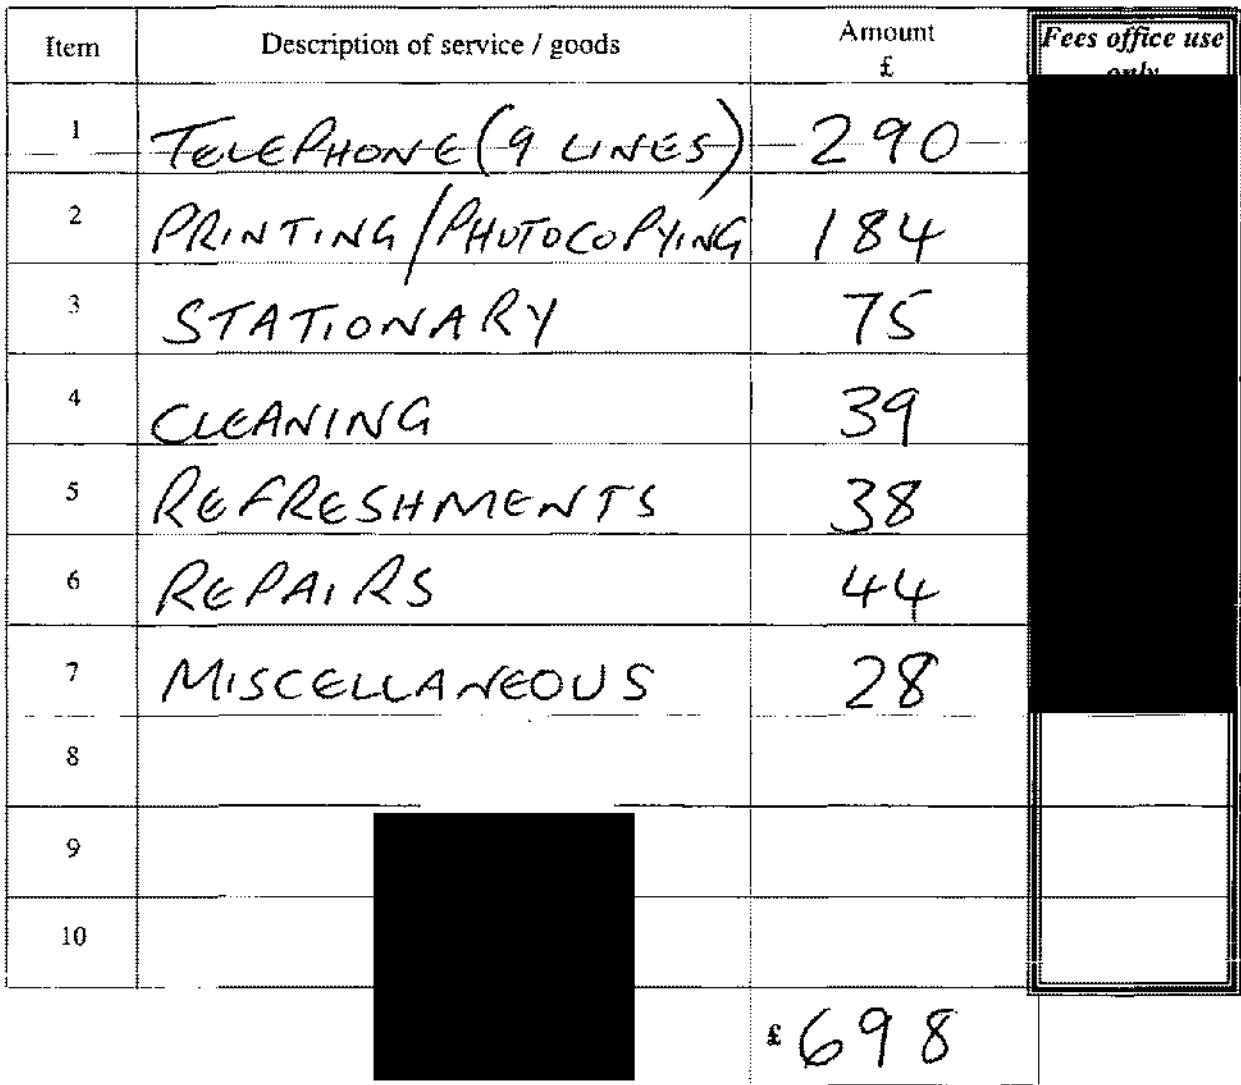 Item Description of service / goods Amount £ Fees office use only
1 TELEPHONE (9 LINES) 290
2 PRINTING/PHOTOCOPYING 184
3 STATIONARY 75
4 CLEANING 39
5 REFRESHMENTS 38
6 REPAIRS 44
7 MISCELLANEOUS 28
8
9
10
£ 698